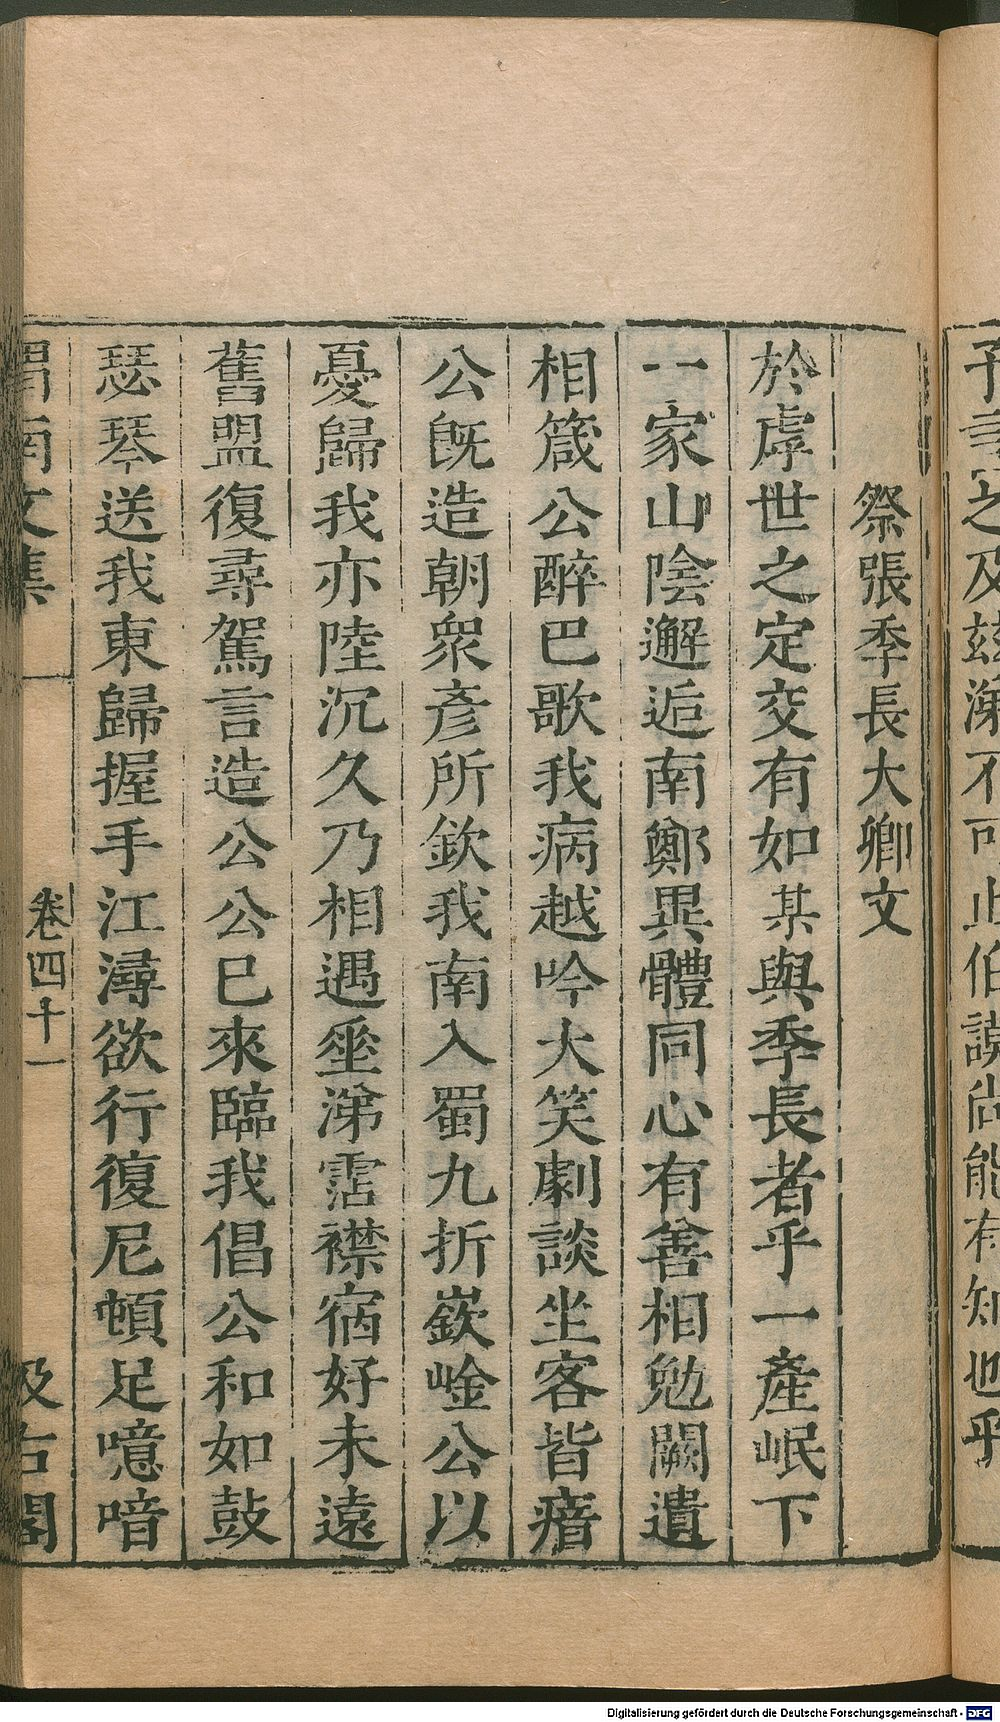 子言之及兹涕不可止伯謨尚能有知也乎
祭張季長大卿文
於虖世之定交有如某與季長者乎一產岷下
一家山陰邂逅南鄭異體同心有善相勉闕遺
相箴公醉巴歌我病越吟大笑劇談坐客皆瘖
公旣造朝衆彥所欽我南入蜀九折嶔崟公以
憂歸我亦陸沉久乃相遇垂涕霑襟宿好未遠
舊盟復尋駕言造公公已來臨我倡公和如鼓
瑟琴送我東歸握手江潯欲行復尼頓足噫喑
渭南文集 卷四十一 汲古閣
Digitalisierung gefördert durch die Deutsche Forschungsgemeinschaft - DFG